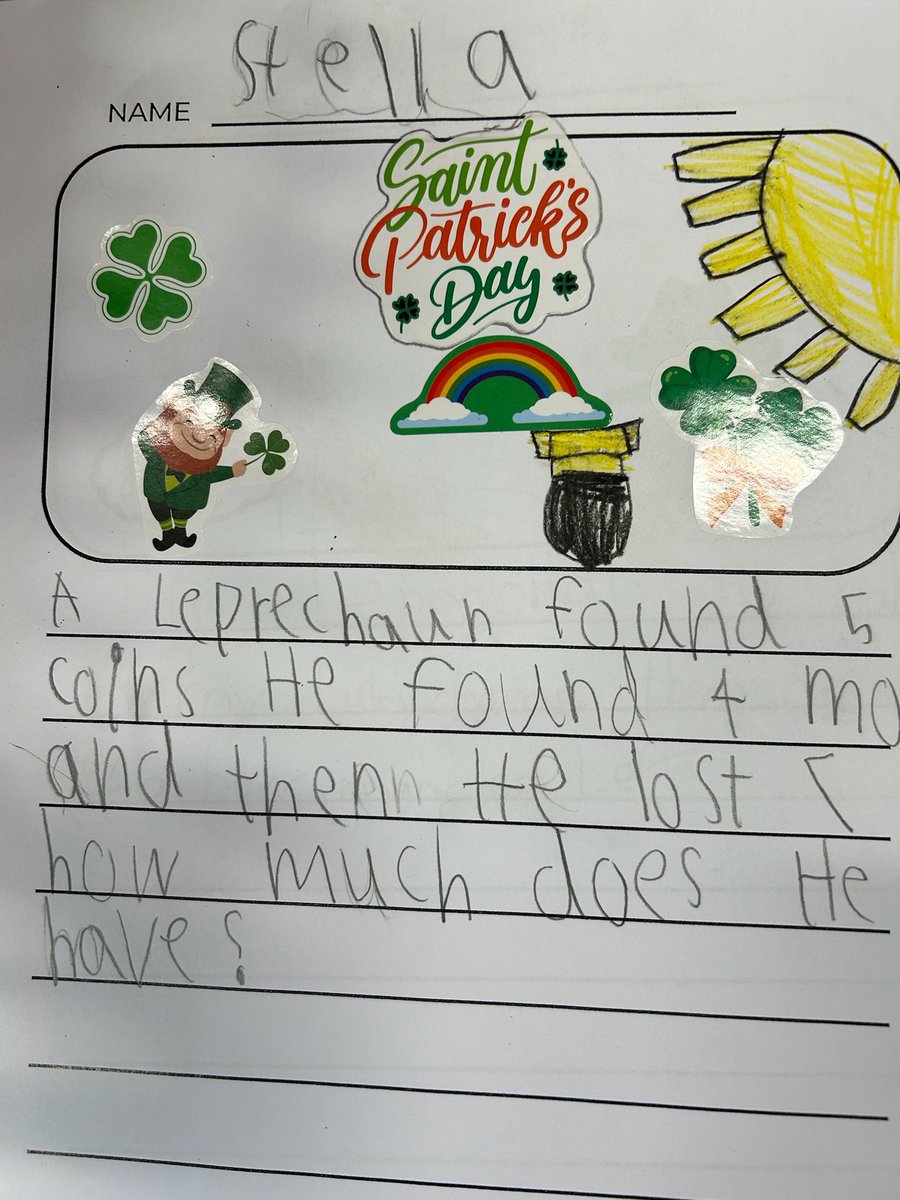 NAME Stella
Saint
Patrick's
Day
A Leprechaun found 5
coins He found 4 mo
and thenn He lost 5
how much does He
have?